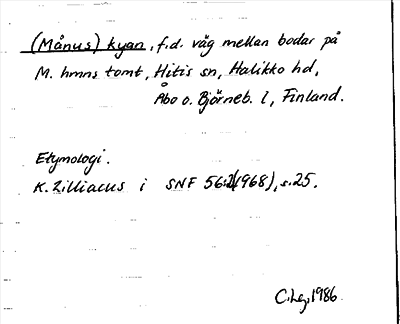 (Månus) kyan, f.d. väg mellan bodar på
M. hmns tomt, Hitis sn, Halikko hd,
Åbo o. Björneb. l, Finland.
Etymologi.
K. Zilliacus i SNF 56:2(1968), s.25.
1986